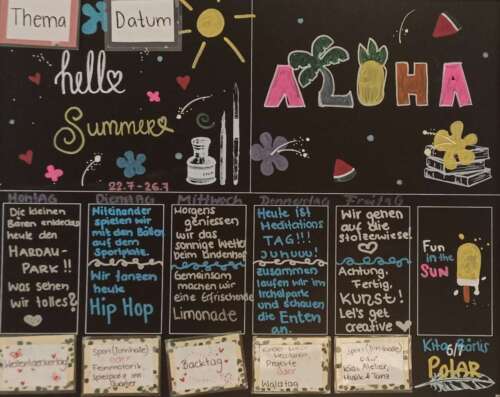 Thema
Datum
hello
Summer
ALOHA
22.7 - 26.7
Montag
Dienstag
Mittwoch
Donnerstag
Freitag
Die kleinen
Bären entdecken
heute den
HARDAU-
PARK!!
Was sehen
wir tolles?
Miteinander
spielen wir
mit den Bällen
auf dem
Sportplatz.
Wir tanzen
heute
Hip Hop
Morgens
geniessen
wir das
sonnige Wetter
beim Lindenhof
Gemeinsam
machen wir
eine Erfrischende
Limonade
Heute ist
Meditations
TAG!!!
Juhuuu!
zusammen
laufen wir im
Irchelpark
und schauen
die Enten
an.
Wir gehen
auf die
Stolzewiese!
Achtung,
Fertig,
KUNST!
Let's get
creative
Fun
in the
SUN
Sport (Turnhalle)
oder
Feinmotorik
Spielplatz im
Quartier
Backtag
Projekte
oder
Waldtag
Sport (Turnhalle)
oder
Kita
POLAR